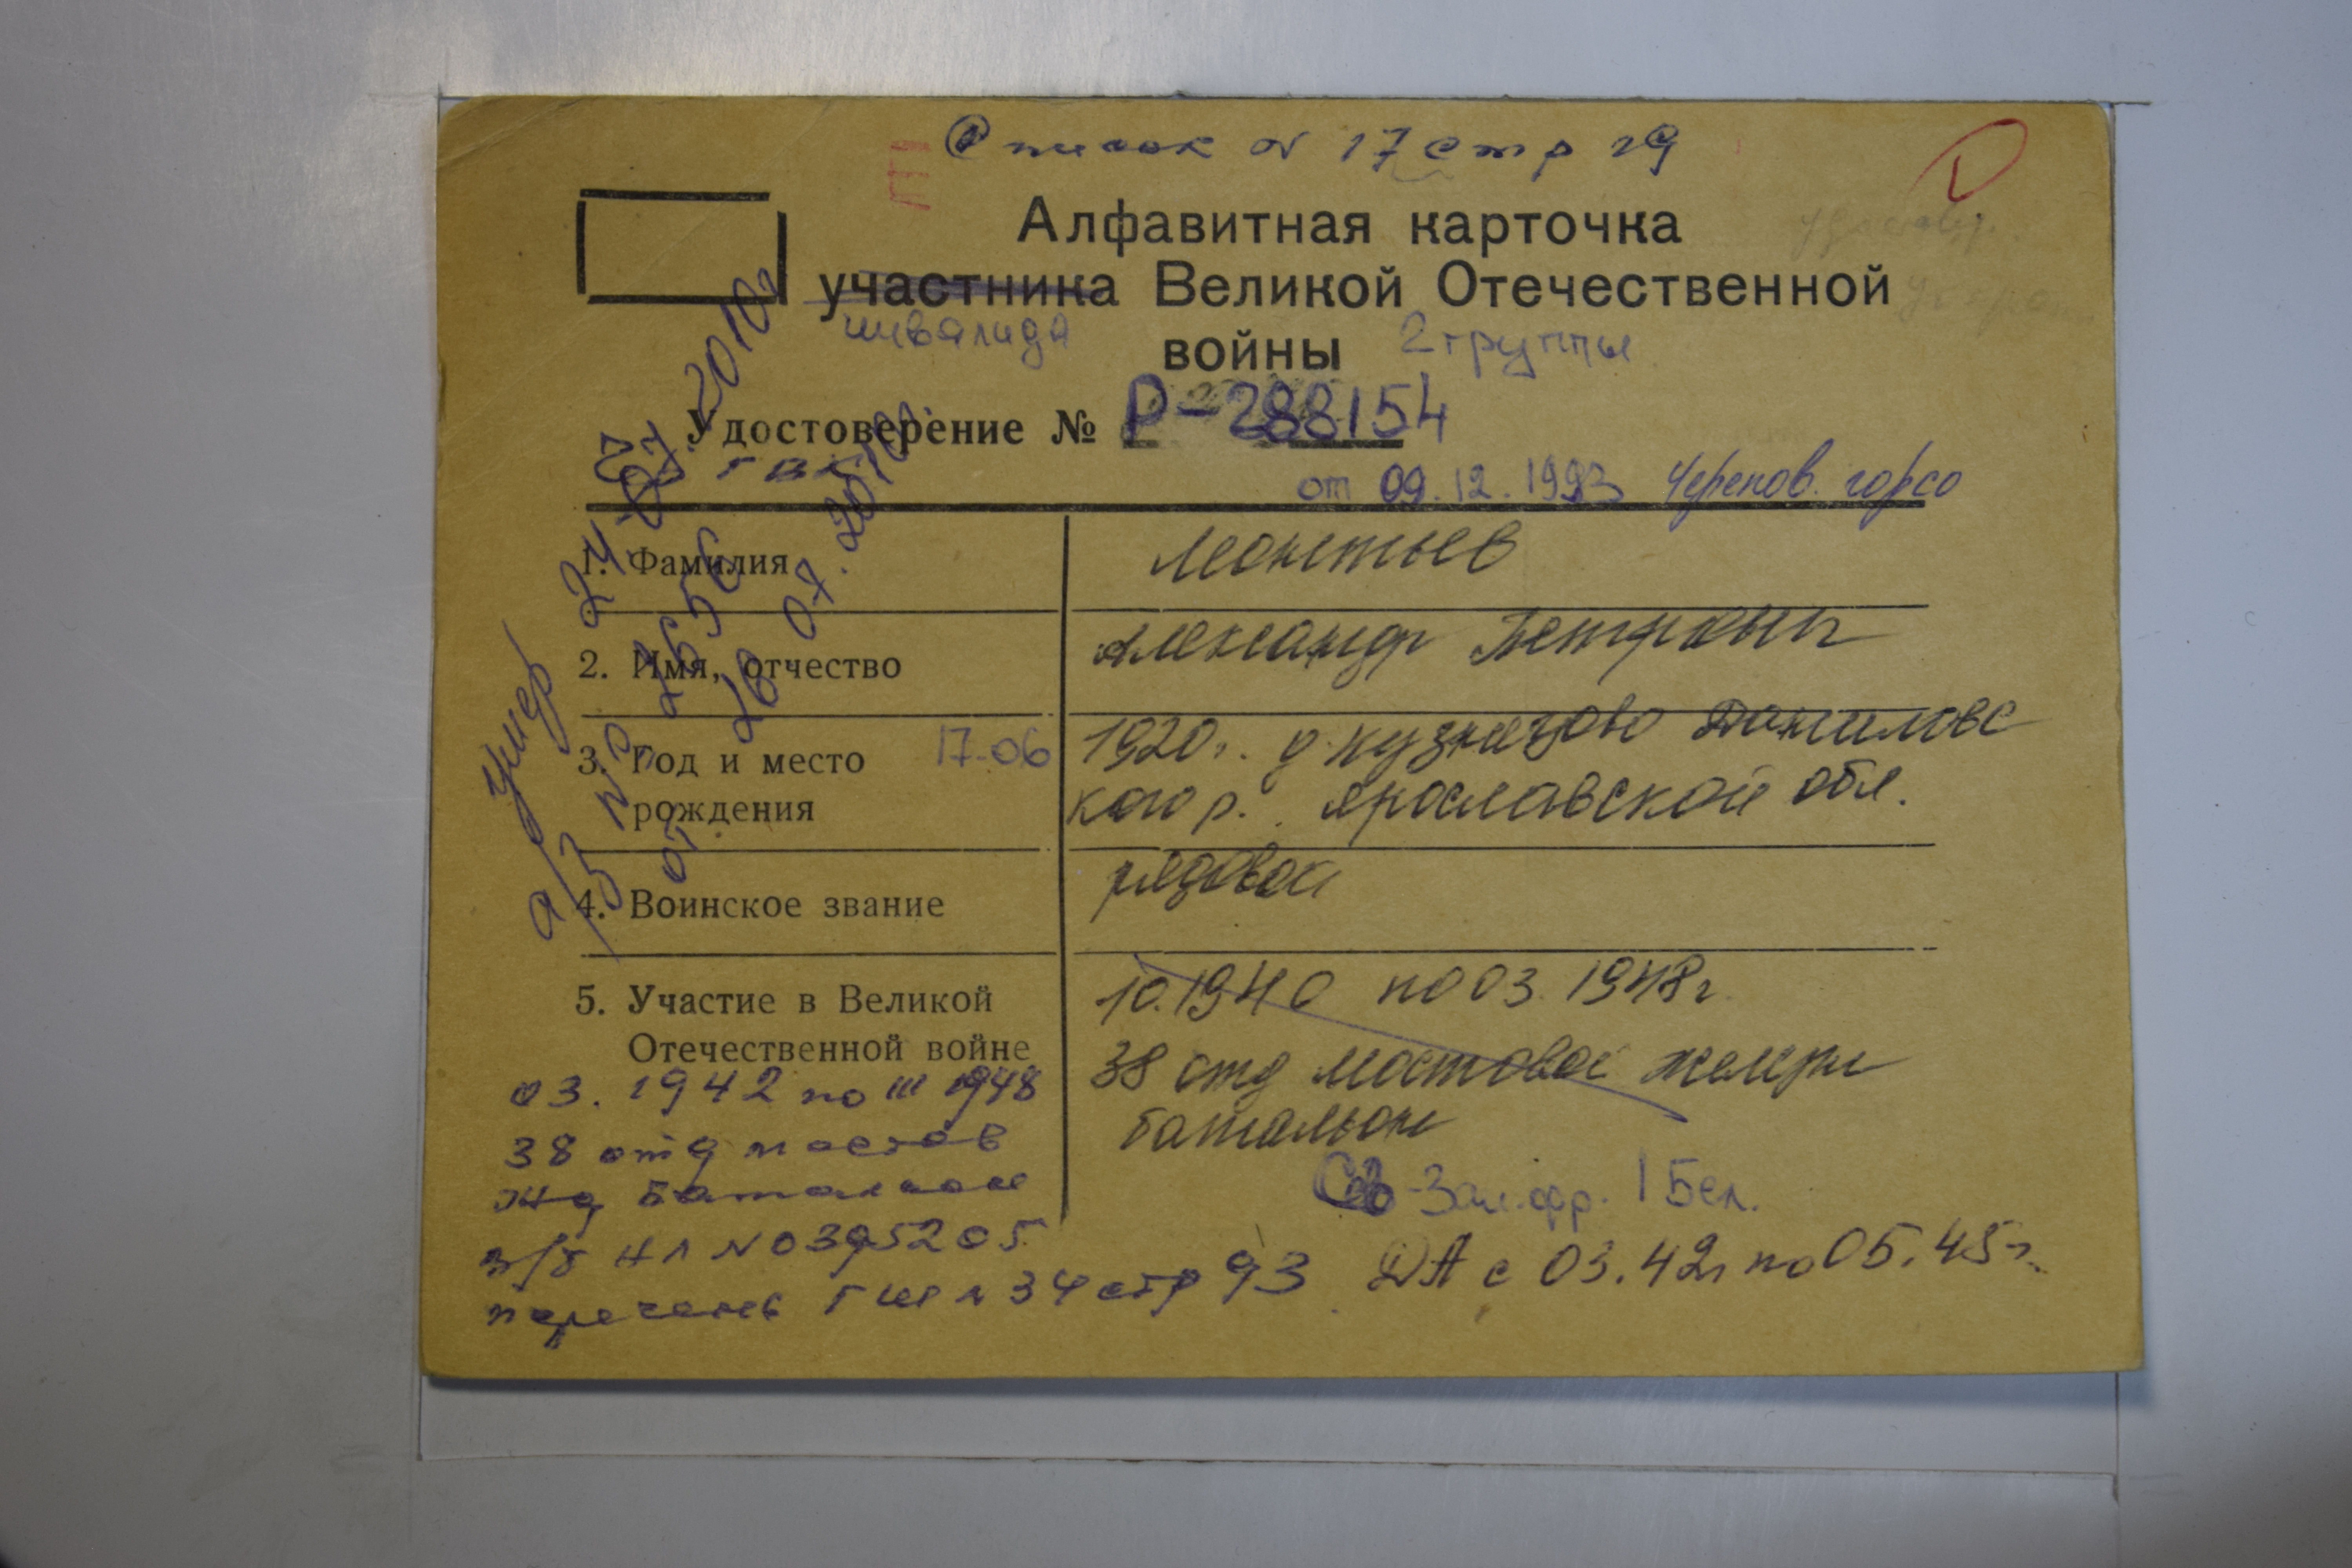 Список N 17 стр 19
Алфавитная карточка
участника Великой Отечественной
инвалида войны 2 группы
Удостоверение № Р-288154
ГВК
от 09.12.1993 Черепов. горсо
1. Фамилия Леонтьев
2. Имя, отчество Александр Петрович
3. Год и место 17-06 1920г. д. Кузнецово Даниловс
рождения кого р. Ярославской обл.
4. Воинское звание рядовой
5. Участие в Великой 10.1940 по 03.1948г.
Отечественной войне 38 отд мостовой желдр
батальон
03.1942 по III 1948
38 отд мостов
жд батальон
Сев-Зап.фр. 1 Бел.
в/б НЛ N 0395205
перечень ГШ N 34 стр 93 ДА с 03.42г по 05.45г.
Умер 24.07.2010г
а/з № 2556
от 26.07.2010г.